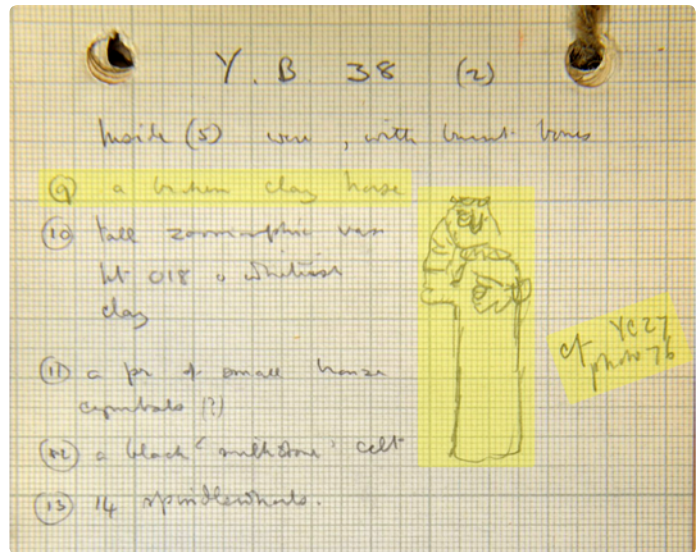 Y. B 38 (2)
Inside (5) were, with burnt bones
(9) a broken clay horse
(10) tall zoomorphic vase
ht 018 o whitish
clay
(11) a pr of small bronze
cymbals (?)
(12) a black 'milkstone' celt
(13) 14 spindlewhorls.
cf YC27
photo 76